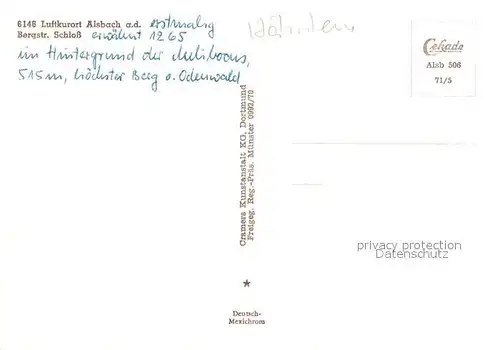 6146 Luftkurort Alsbach a.d. erstmalig
Bergstr. Schloß erwähnt 1265
im Hintergrund der Melibocus,
515m, höchster Berg v. Odenwald
Hähnlein
Cekade
Alsb 506
71/5
Cramers Kunstanstalt KG, Dortmund
Freigeg. Reg.-Präs. Münster 0992/70
privacy protection
Datenschutz
Deutsch-
Mexichrom